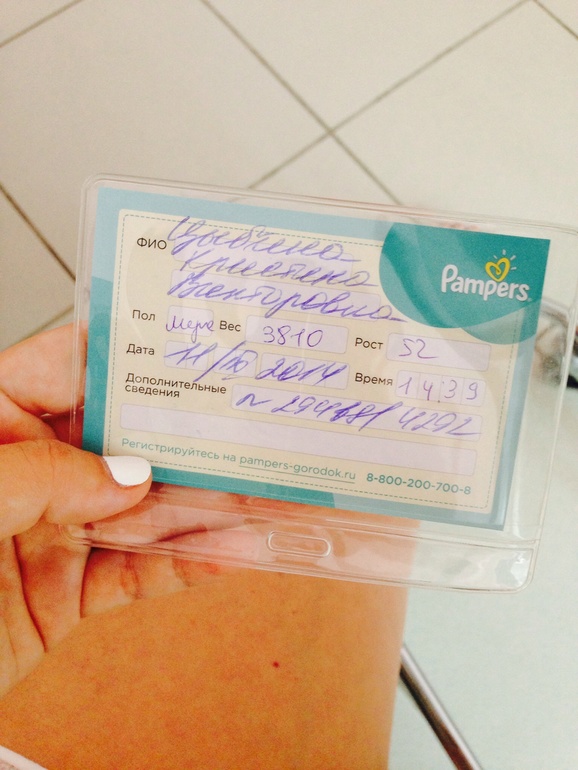 ФИО
Кристина
Викторовна
Pampers
Пол Муж Вес 3810 Рост 52
Дата 11/ 2014 Время 1439
Дополнительные
сведения 4292
Регистрируйтесь на pampers-gorodok.ru 8-800-200-700-8